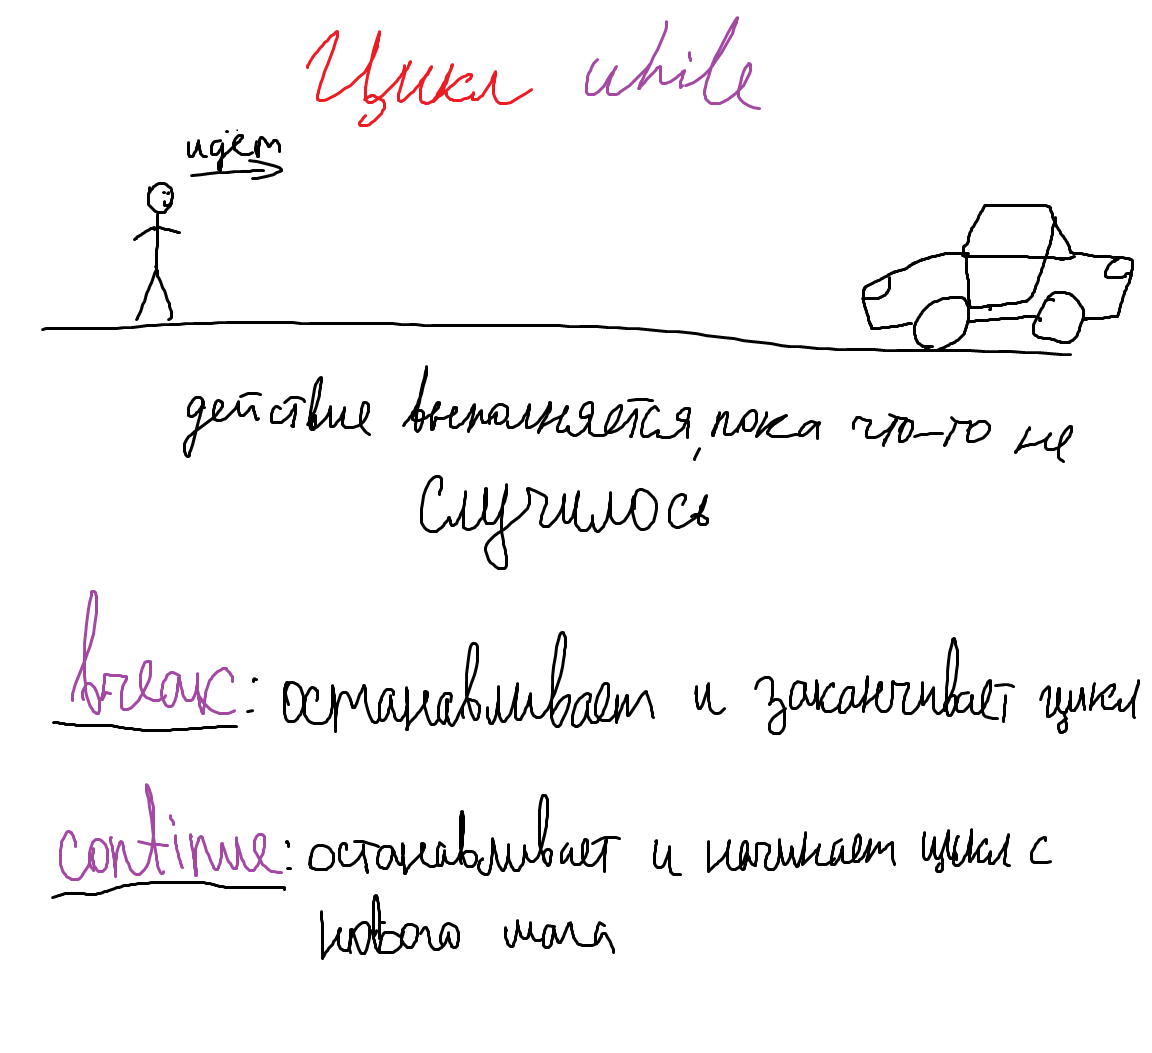 Цикл while
идёт
действие выполняется, пока что-то не
случилось
break: останавливает и заканчивает цикл
continue: останавливает и начинает цикл с
нового шага